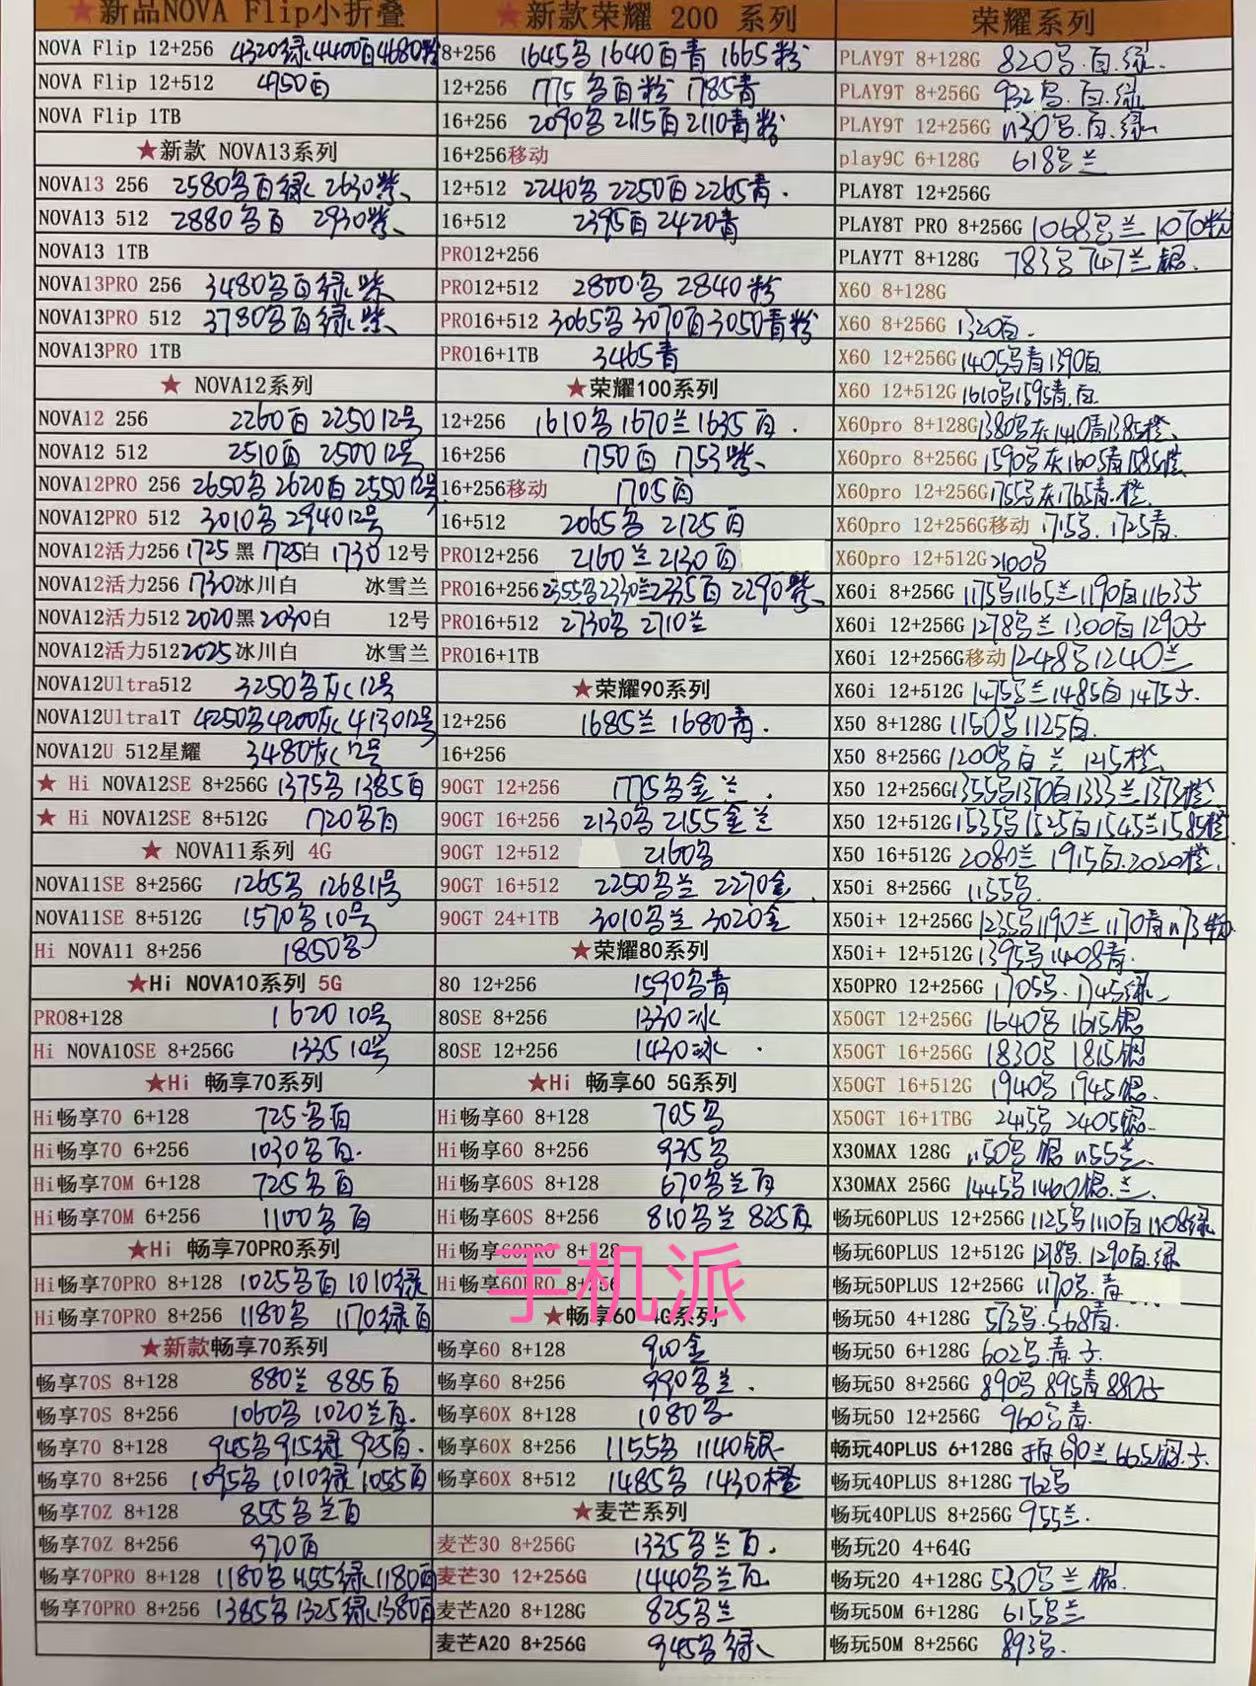 ★新品NOVA Flip小折叠
NOVA Flip 12+256 4320绿4400白4680粉
NOVA Flip 12+512 4950白
NOVA Flip 1TB
★新款 NOVA13系列
NOVA13 256 2580名白绿 2630紫
NOVA13 512 2880名白 2930紫
NOVA13 1TB
NOVA13PRO 256 3480名白绿紫
NOVA13PRO 512 3780名白绿紫
NOVA13PRO 1TB
★ NOVA12系列
NOVA12 256 2260白 2250 12号
NOVA12 512 2510白 2500 12号
NOVA12PRO 256 2650名 2620白 2550 12号
NOVA12PRO 512 3010名 2940 12号
NOVA12活力256 1725黑 1725白 1730 12号
NOVA12活力256 1730冰川白 冰雪兰
NOVA12活力512 2020黑 2030白 12号
NOVA12活力512 2025冰川白 冰雪兰
NOVA12Ultra512 3250名灰 12号
NOVA12Ultra1T 4250名4200灰 4130 12号
NOVA12U 512星耀 3480灰 12号
★ Hi NOVA12SE 8+256G 1375名 1385白
★ Hi NOVA12SE 8+512G 1720名白
★ NOVA11系列 4G
NOVA11SE 8+256G 1265名 1268 11号
NOVA11SE 8+512G 1570名 10号
Hi NOVA11 8+256 1850名
★Hi NOVA10系列 5G
PRO8+128 1620 10号
Hi NOVA10SE 8+256G 1335 10号
★Hi 畅享70系列
Hi畅享70 6+128 725名白
Hi畅享70 6+256 1030名白.
Hi畅享70M 6+128 725名白
Hi畅享70M 6+256 1100名白
★Hi 畅享70PRO系列
Hi畅享70PRO 8+128 1025名白 1010绿
Hi畅享70PRO 8+256 1180名 1170绿白
★新款畅享70系列
畅享70S 8+128 880兰 885白
畅享70S 8+256 1060名 1020兰白.
畅享70 8+128 945名915绿 925白.
畅享70 8+256 1095名 1010绿 1055白
畅享70Z 8+128 855名兰白
畅享70Z 8+256 970白
畅享70PRO 8+128 1180名 1155绿 1180白
畅享70PRO 8+256 1385名 1325绿 1380白
★新款荣耀 200 系列
8+256 1645名 1640白青 1665粉
12+256 1775名白粉 1785青
16+256 2090名 2115白 2110青粉
16+256移动
12+512 2240名 2250白 2265青.
16+512 2395白 2420青
PRO12+256
PRO12+512 2800名 2840粉
PRO16+512 3065名 3070白3050青粉
PRO16+1TB 3465青
★荣耀100系列
12+256 1610名 1670兰 1635白.
16+256 1750白 1753紫
16+256移动 1705白
16+512 2065名 2125白
PRO12+256 2160兰 2130白
PRO16+256 2355名2330兰2335白 2290紫
PRO16+512 2730名 2710兰
PRO16+1TB
★荣耀90系列
12+256 1685兰 1680青.
16+256
90GT 12+256 1775名金兰.
90GT 16+256 2130名 2155金兰
90GT 12+512 2160名
90GT 16+512 2250名兰 2270金
90GT 24+1TB 3010名兰 3020金
★荣耀80系列
80 12+256 1590名青
80SE 8+256 1330冰
80SE 12+256 1430冰
★Hi 畅享60 5G系列
Hi畅享60 8+128 705名
Hi畅享60 8+256 935名
Hi畅享60S 8+128 670名兰白
Hi畅享60S 8+256 810名兰 825白
Hi畅享60PRO 8+128
Hi畅享60PRO 8+256
手机派
★畅享60 4G系列
畅享60 8+128 910金
畅享60 8+256 990名兰.
畅享60X 8+128 1080名
畅享60X 8+256 1155名 1140银
畅享60X 8+512 1485名 1430橙
★麦芒系列
麦芒30 8+256G 1335名兰白.
麦芒30 12+256G 1440名兰白
麦芒A20 8+128G 825名兰
麦芒A20 8+256G 945名绿
荣耀系列
PLAY9T 8+128G 820名.白.绿.
PLAY9T 8+256G 932名.白.绿
PLAY9T 12+256G 1130名.白.绿
play9C 6+128G 618名兰
PLAY8T 12+256G
PLAY8T PRO 8+256G 1068名兰 1070粉
PLAY7T 8+128G 783名747兰银.
X60 8+128G
X60 8+256G 1320白.
X60 12+256G 1405名青1390白
X60 12+512G 1610名1595青.白
X60pro 8+128G 1380名灰1410青1385橙
X60pro 8+256G 1590名灰1605青1585橙
X60pro 12+256G 1755名灰1765青.橙
X60pro 12+256G移动 1715名. 1725青.
X60pro 12+512G 2100名
X60i 8+256G 1175名1165兰1190白1163子
X60i 12+256G 1278名兰 1300白1290子
X60i 12+256G移动 1248名1240兰
X60i 12+512G 1475名兰1485白1475子.
X50 8+128G 1150名1125白.
X50 8+256G 1200名白兰 1215橙
X50 12+256G 1355名1370白1333兰1373橙
X50 12+512G 1535名1525白1545兰1585橙
X50 16+512G 2080兰 1915白.2020橙.
X50i 8+256G 1155名.
X50i+ 12+256G 1235名1190兰1170青1173粉
X50i+ 12+512G 1395名1408青.
X50PRO 12+256G 1705名.1745绿
X50GT 12+256G 1640名 1615银
X50GT 16+256G 1830名 1815银
X50GT 16+512G 1940名 1945银.
X50GT 16+1TBG 2415名 2405银
X30MAX 128G 1150名银1155兰.
X30MAX 256G 1445名1460银.兰.
畅玩60PLUS 12+256G 1125名1110白1108绿
畅玩60PLUS 12+512G 1278名.1290白.绿
畅玩50PLUS 12+256G 1170名.青
畅玩50 4+128G 573名.568青.
畅玩50 6+128G 602名.青子.
畅玩50 8+256G 890名 895青 880子
畅玩50 12+256G 960名青.
畅玩40PLUS 6+128G 690兰 665银.子.
畅玩40PLUS 8+128G 762名
畅玩40PLUS 8+256G 955兰.
畅玩20 4+64G
畅玩20 4+128G 530名兰银.
畅玩50M 6+128G 615名兰
畅玩50M 8+256G 893名.